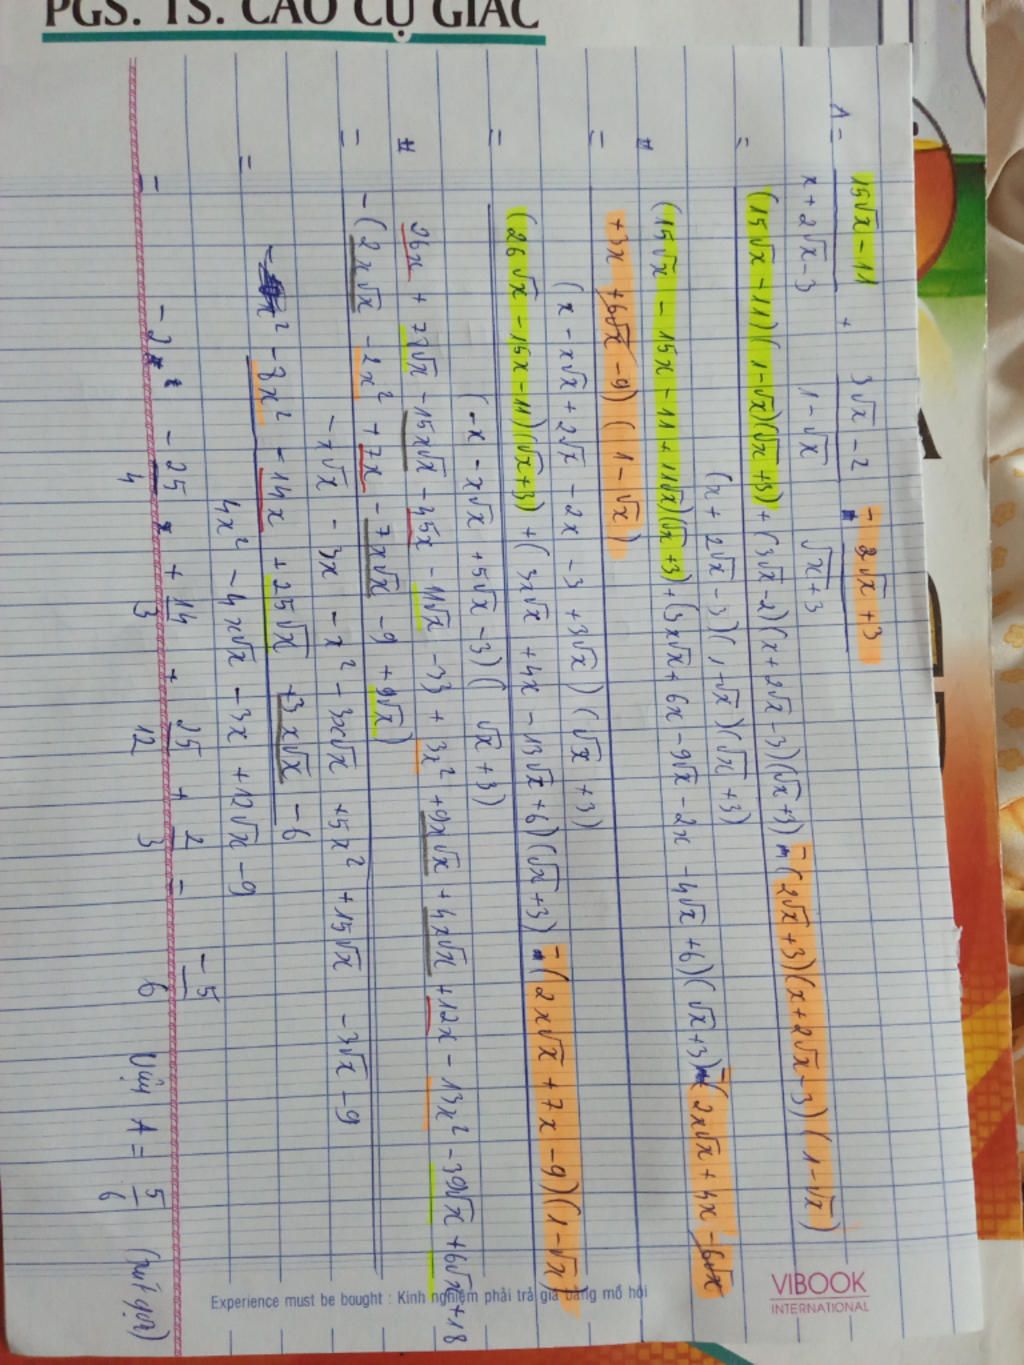 PGS. TS. CAO CỰ GIÁC
A = 15√x − 11 / x + 2√x − 3 + 3√x − 2 / 1 − √x − 2√x + 3 / √x + 3
= (15√x − 11)(1 − √x)(√x + 3) + (3√x − 2)(x + 2√x − 3)(√x + 3) − (2√x + 3)(x + 2√x − 3)(1 − √x)
(x + 2√x − 3)(1 − √x)(√x + 3)
# (15√x − 15x − 11 + 11√x)(√x + 3) + (3x√x + 6x − 9√x − 2x − 4√x + 6)(√x + 3) − (2x√x + 4x − 6√x
+3x + 6√x − 9)(1 − √x)
= (x − x√x + 2√x − 2x − 3 + 3√x)(√x + 3)
(26√x − 15x − 11)(√x + 3) + (3x√x + 4x − 13√x + 6)(√x + 3) − (2x√x + 7x − 9)(1 − √x)
= (−x − x√x + 5√x − 3)(√x + 3)
# 26x + 78√x − 15x√x − 45x − 11√x − 33 + 3x² + 9x√x + 4x√x + 12x − 13x² − 39√x + 6√x + 18
= −(2x√x − 2x² + 7x − 7x√x − 9 + 9√x)
−x√x − 3x − x² − 3x√x + 5x² + 15√x − 3√x − 9
= − x² − 8x² − 14x + 25√x + 3x√x − 6
4x² − 4x√x − 3x + 12√x − 9
= −2 − 25/4 + 14/3 + 25/12 + 2/3 = −5/6 Vậy A = 5/6 (rút gọn)
VIBOOK
INTERNATIONAL
Experience must be bought : Kinh nghiệm phải trả giá bằng mồ hôi